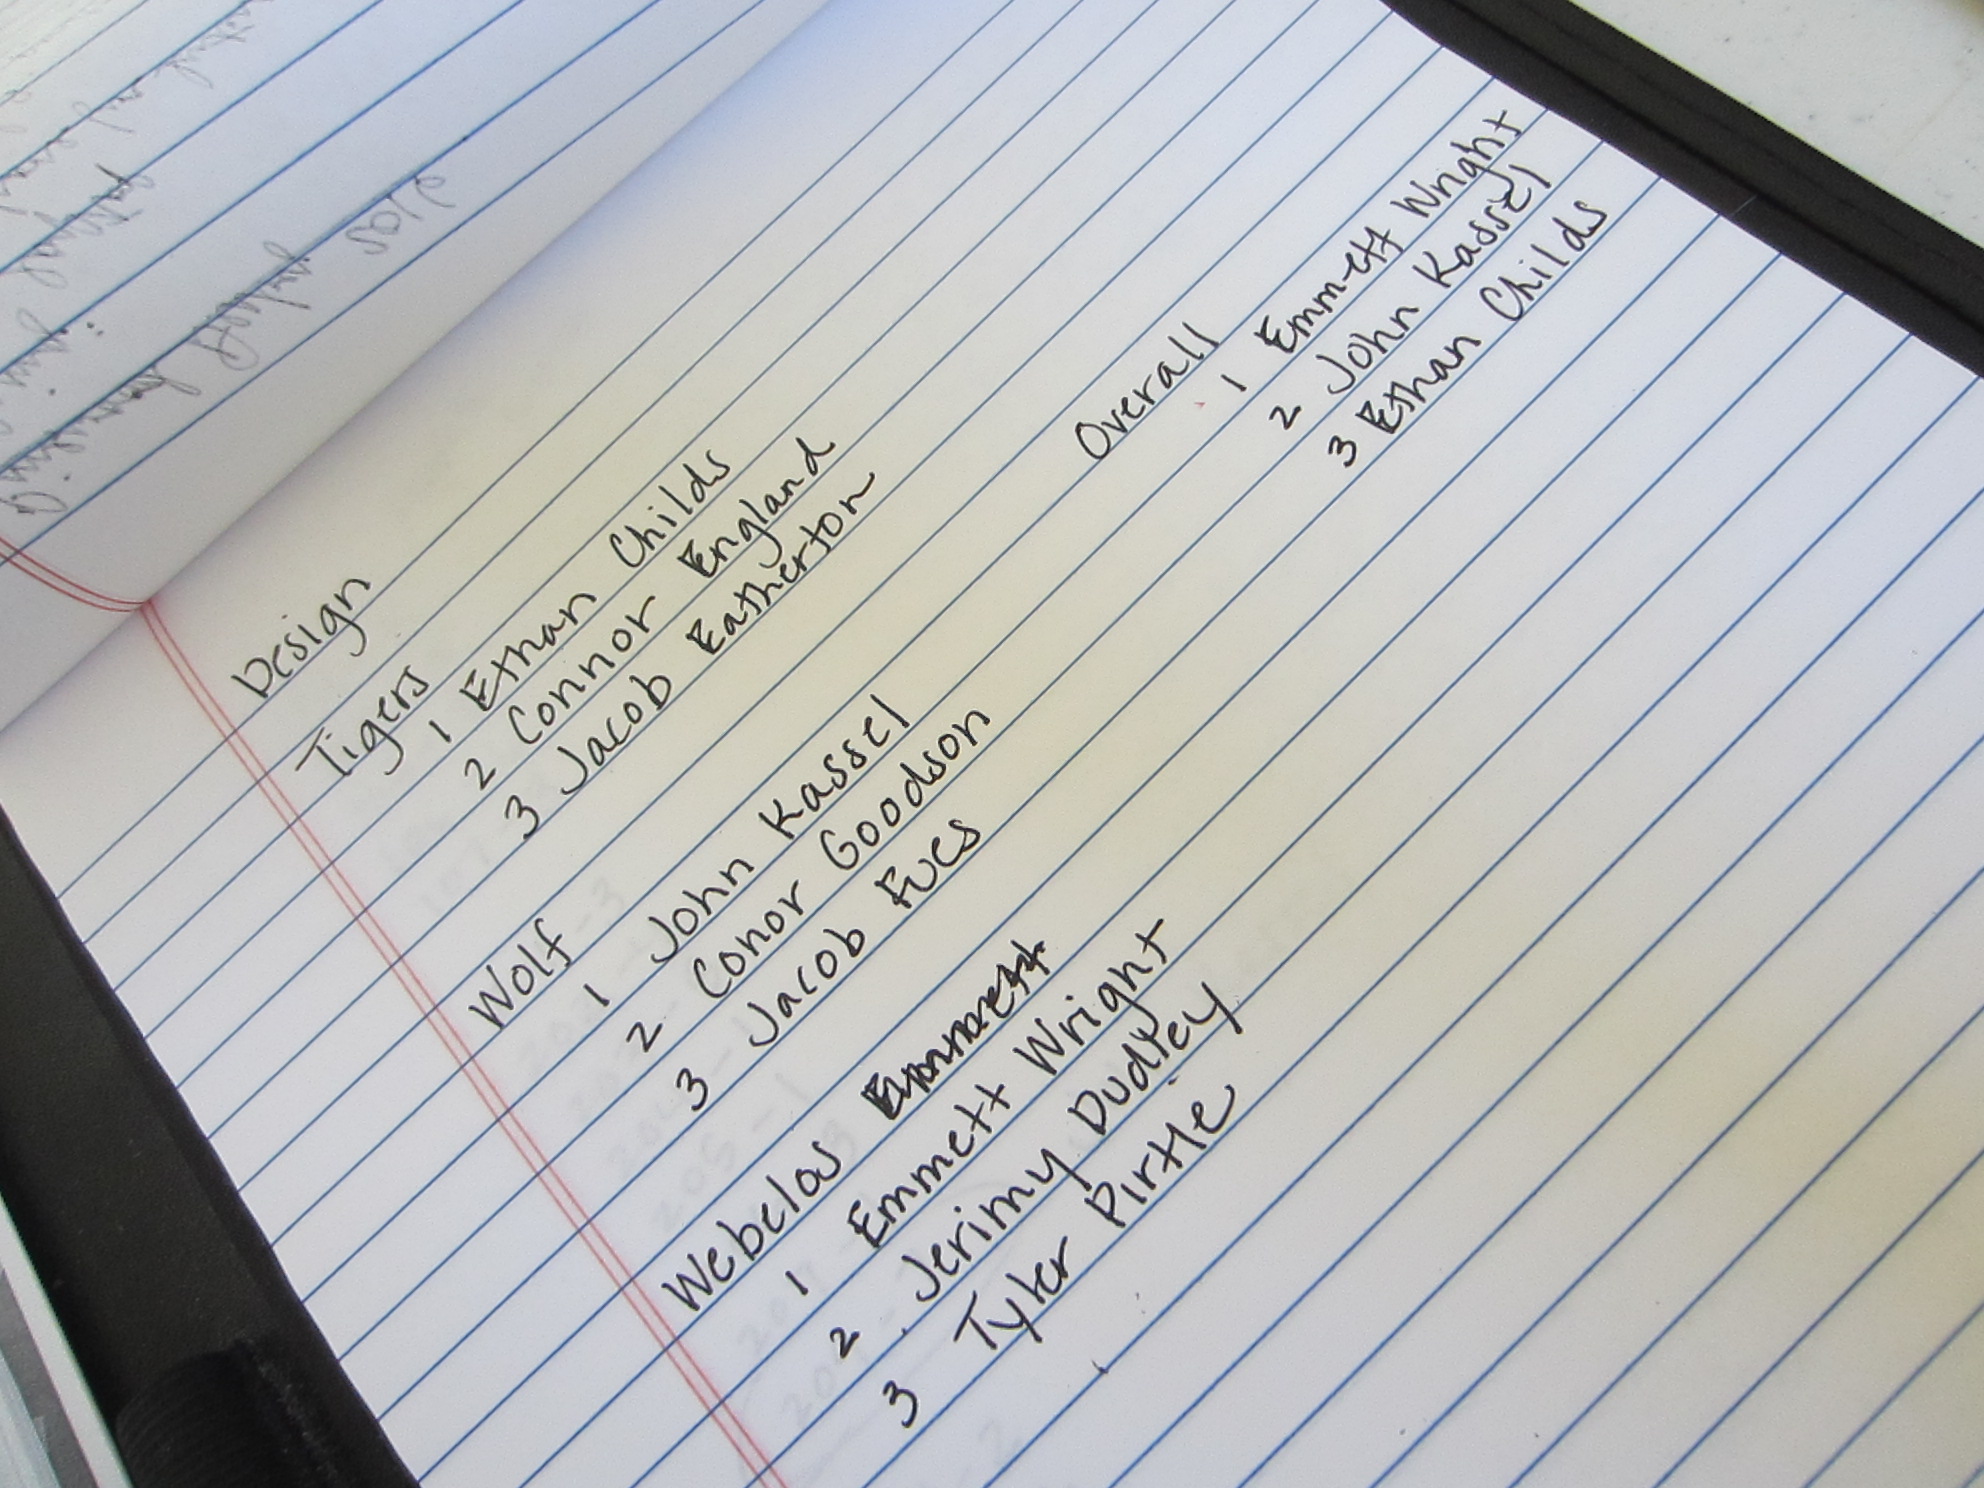 Design
Tigers
1 Ethan Childs
2 Connor England
3 Jacob Eatherton
Wolf
1 John Kassel
2 Conor Goodson
3 Jacob Fues
Webelos
1 Emmett Wright
2 Jerimy Dudley
3 Tyler Pirtle
Overall
1 Emmett Wright
2 John Kassel
3 Ethan Childs